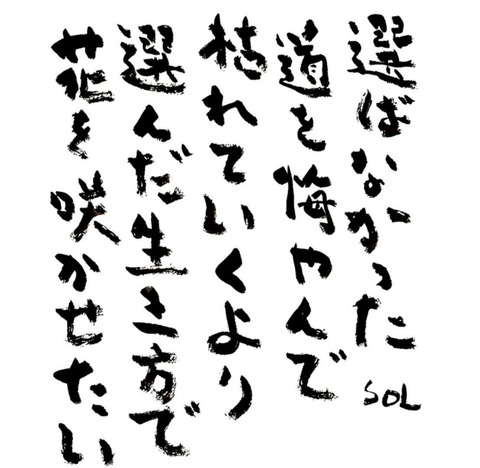 選ばなかった
道を悔やんで
枯れていくより
選んだ生き方で
花を咲かせたい
SOL